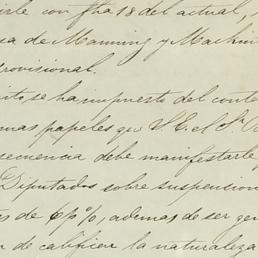 irle con fha 18 del actual,
sa de Manning y Mackin
rovisional.
ito se ha impuesto del conte
mas papeles que S. E. el Sr.
secuencia debe manifestarle
Diputados sobre suspension
es de 6 p%, ademas de ser gen
n de calificar la naturaleza